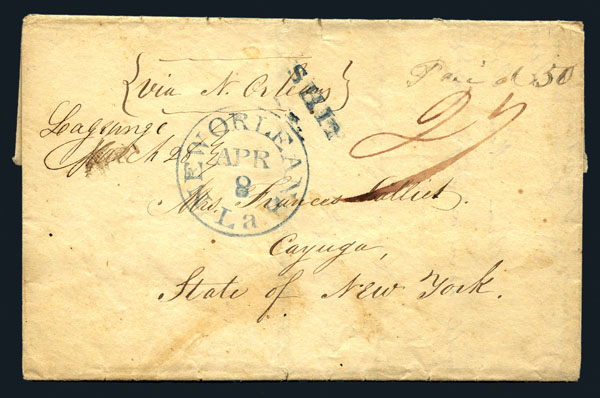 {via N. Orleans}
SHIP
Paid 50
27
Lagrange
March 28
NEW ORLEANS
APR
8
La
Mrs. Frances
Cayuga,
State of New York.